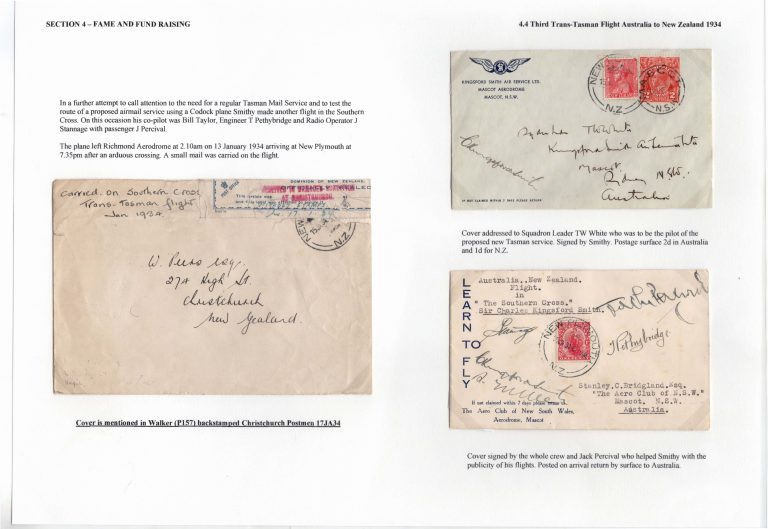 SECTION 4 – FAME AND FUND RAISING
4.4 Third Trans-Tasman Flight Australia to New Zealand 1934
In a further attempt to call attention to the need for a regular Tasman Mail Service and to test the
route of a proposed airmail service using a Codock plane Smithy made another flight in the Southern
Cross. On this occasion his co-pilot was Bill Taylor, Engineer T Pethybridge and Radio Operator J
Stannage with passenger J Percival.
The plane left Richmond Aerodrome at 2.10am on 13 January 1934 arriving at New Plymouth at
7.35pm after an arduous crossing. A small mail was carried on the flight.
carried on Southern Cross
Trans-Tasman flight
Jan 1934.
DOMINION OF NEW ZEALAND
POST OFFICE
AT CHRISTCHURCH
NEW
N.Z.
W. Peers Esq.
27A High St.
Christchurch
New Zealand.
Cover is mentioned in Walker (P157) backstamped Christchurch Postmen 17JA34
KINGSFORD SMITH AIR SERVICE LTD.
MASCOT AERODROME
MASCOT, N.S.W.
NEW
N.Z.
MASCOT
N.S.W.
2
Squadron TW White
Kingsford Smith Air Service Ltd
Mascot
Sydney N.S.W.
Australia
IF NOT CLAIMED WITHIN 7 DAYS PLEASE RETURN
Cover addressed to Squadron Leader TW White who was to be the pilot of the
proposed new Tasman service. Signed by Smithy. Postage surface 2d in Australia
and 1d for N.Z.
LEARN TO FLY
Australia..New Zealand.
Flight.
in
"The Southern Cross."
Sir Charles Kingsford Smith.
Jack Percival
NEW PLYMOUTH
N.Z.
T Pethybridge
Stanley.C.Bridgland.Esq.
"The Aero Club of N.S.W."
Mascot. N.S.W.
Australia.
If not claimed within 7 days please return to
The Aero Club of New South Wales,
Aerodrome, Mascot
Cover signed by the whole crew and Jack Percival who helped Smithy with the
publicity of his flights. Posted on arrival return by surface to Australia.